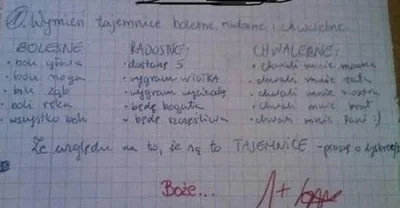 1. Wymień tajemnice bolesne, radosne i chwalebne.
BOLESNE RADOSNE: CHWALEBNE:
• boli głowa • dostanę 5 • chwali mnie mama
• boli noga • wygram • chwali mnie tata
• boli ząb • wygram wycieczkę • chwali mnie siostra
• boli ręka • będę bogata • chwali mnie brat
• wszystko boli • będę szczęśliwa • chwali mnie Pani :)
Ze względu na to, że są to TAJEMNICE - proszę o dyskrecję
Boże... 1+